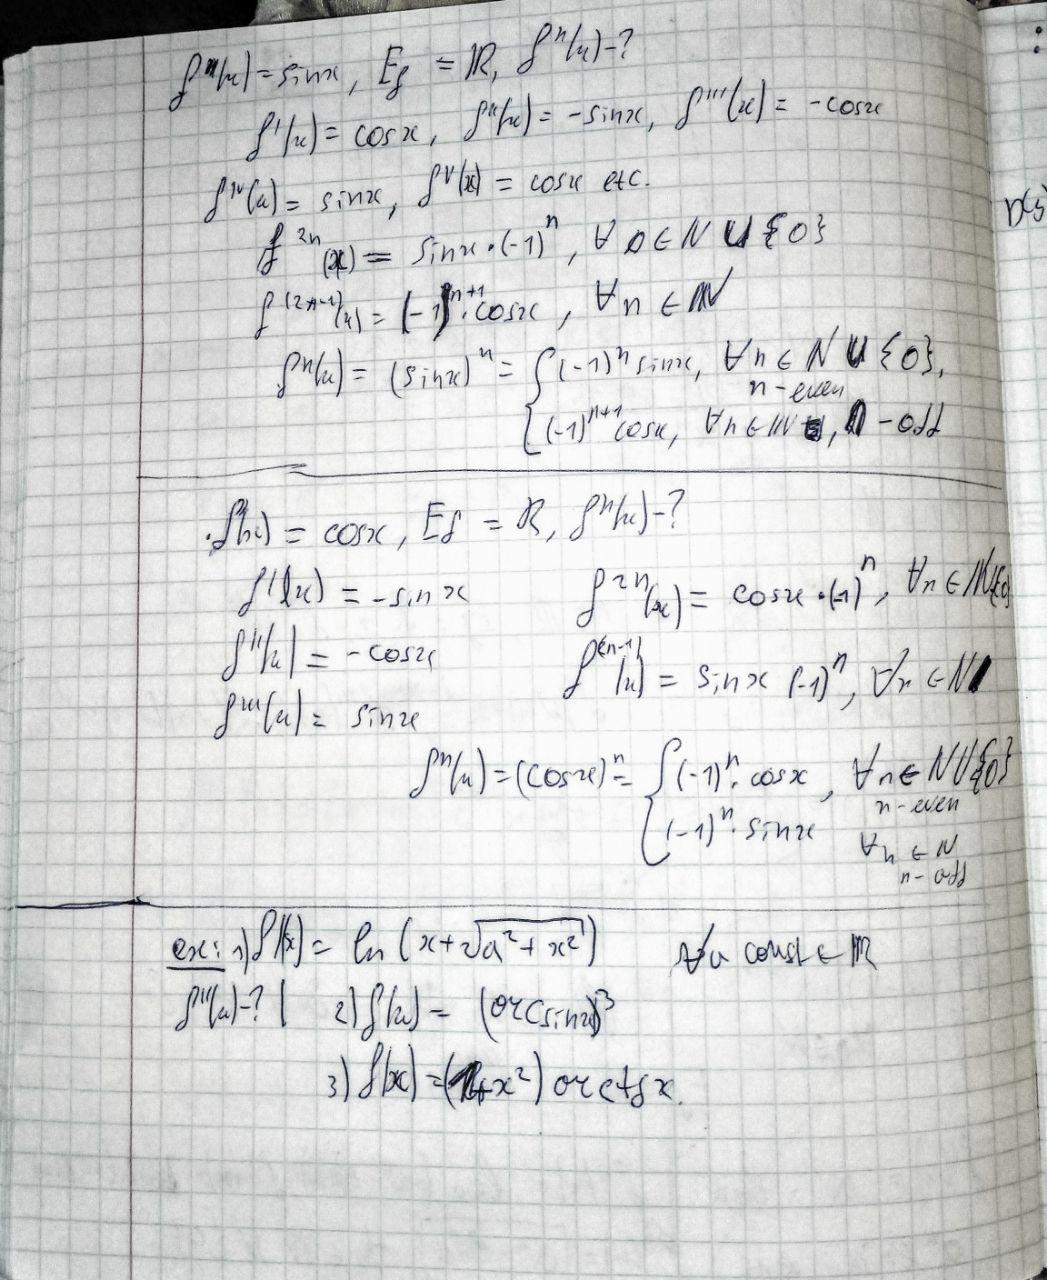 f(x) = sinx, E_f = ℝ, fⁿ(x) - ?
f'(x) = cosx, f''(x) = -sinx, f'''(x) = -cosx
f^IV(x) = sinx, f^V(x) = cosx etc.
f^2n(x) = sinx·(-1)^n, ∀ n ∈ N ∪ {0}
f^(2n-1)(x) = (-1)^n+1·cosx, ∀n ∈ ℕ
fⁿ(x) = (sinx)^n = { (-1)^n sinx, ∀n ∈ N ∪ {0},
n - even
(-1)^n+1 cosx, ∀n ∈ ℕ, n - off
f(x) = cosx, E_f = ℝ, fⁿ(x) - ?
f'(x) = -sinx f^2n(x) = cosx·(-1)^n, ∀n ∈ ℕ∪{0}
f''(x) = -cosx f^(2n-1)(x) = sinx (-1)^n, ∀n ∈ N
f'''(x) = sinx
fⁿ(x) = (cosx)^n = { (-1)^n· cosx, ∀n ∈ N∪{0}
n - even
(-1)^n· sinx ∀n ∈ N
n - off
ex: 1) f(x) = ln (x+√a²+x²) ∀a const ∈ ℝ
f''(x) - ? | 2) f(x) = (arcsinx)³
3) f(x) = (1+x²) arctgx.